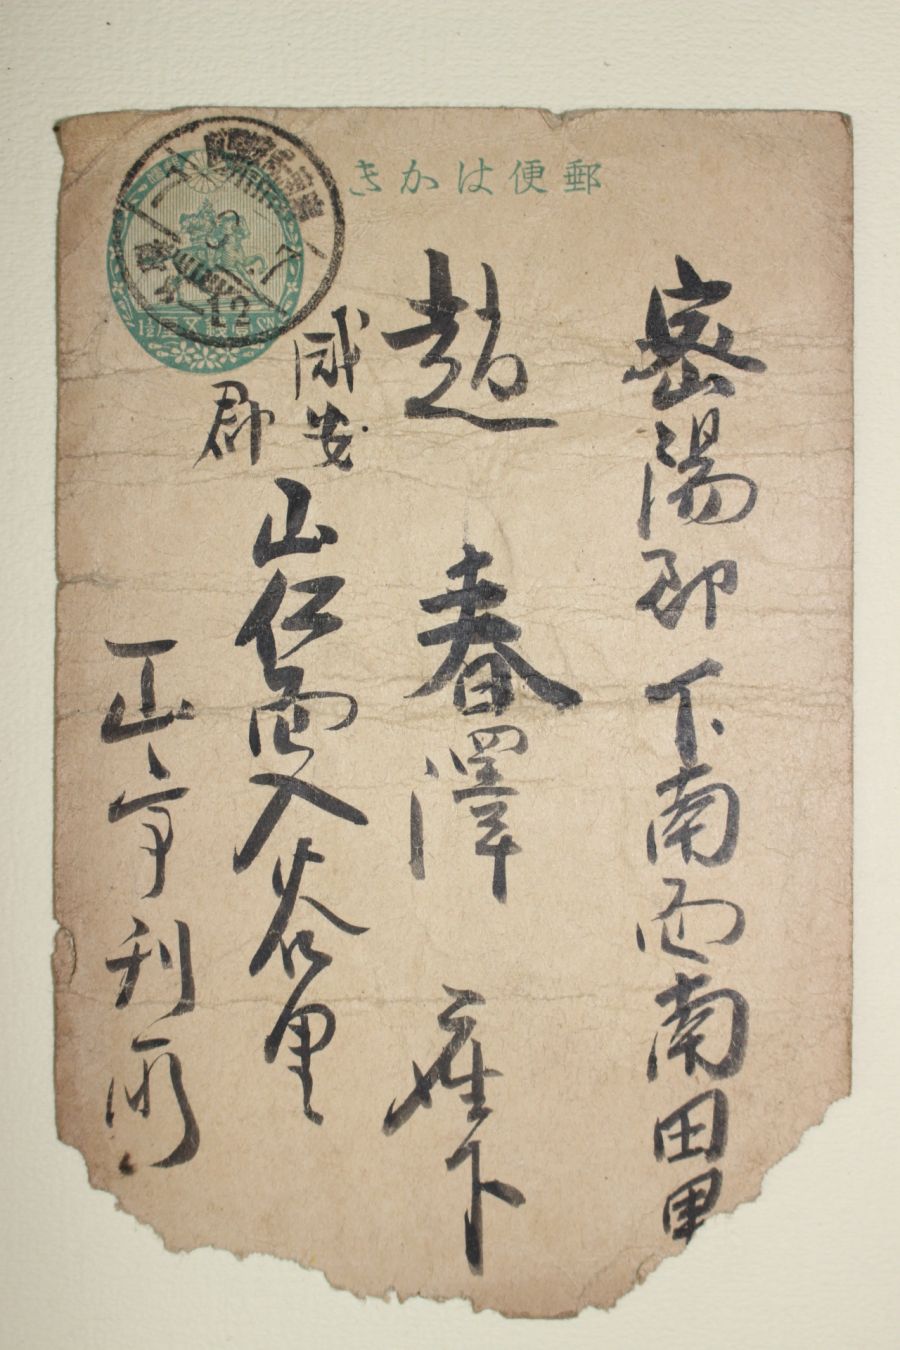 郵便はかき
密陽郡下南面南田里
趙春澤 座下
咸安
郡
山仁面入谷里
刊所
7
12